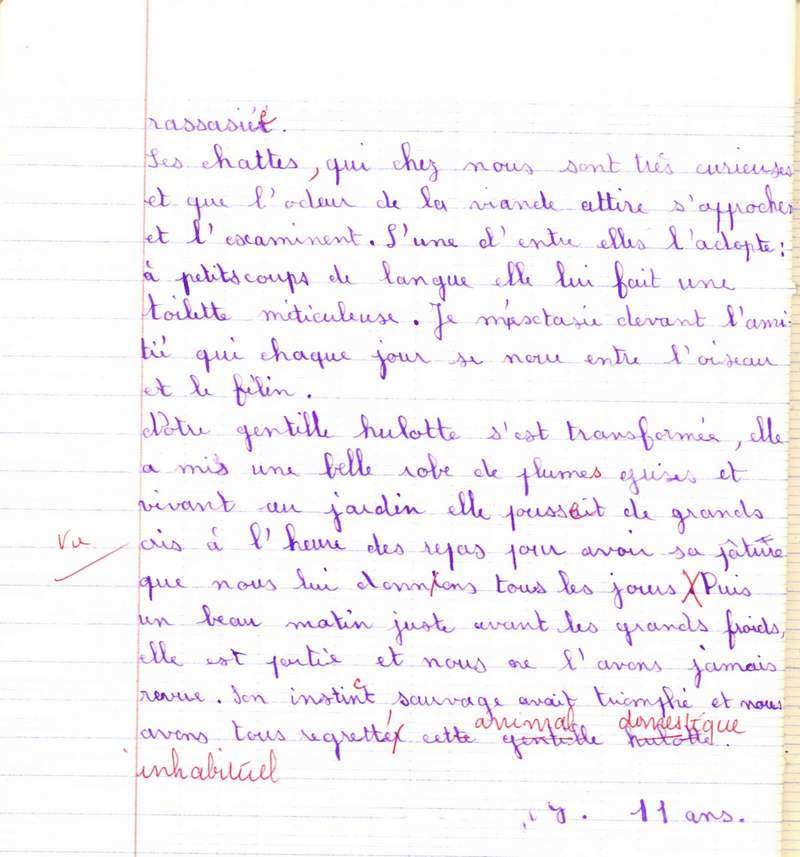 rassasiée.
Les chattes, qui chez nous sont très curieuses
et que l'odeur de la viande attire s'approchent
et l'examinent. L'une d'entre elles l'adopte :
à petits coups de langue elle lui fait une
toilette méticuleuse. Je m'esctasie devant l'ami-
tié qui chaque jour se noue entre l'oiseau
et le félin.
Notre gentille hulotte s'est transformée, elle
a mis une belle robe de plumes grises et
vivant au jardin elle poussait de grands
Vu cris à l'heure des repas pour avoir sa pâture
que nous lui donnions tous les jours. Puis
un beau matin juste avant les grands froids,
elle est partie et nous ne l'avons jamais
revue. Son instinct sauvage avait triomphé et nous
animal domestique
avons tous regretté cette gentille hulotte.
inhabituel
y. 11 ans.